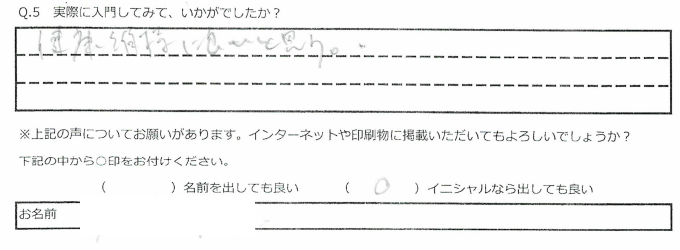 Q.5 実際に入門してみて、いかがでしたか？
健康維持に良いと思う。
※上記の声についてお願いがあります。インターネットや印刷物に掲載いただいてもよろしいでしょうか？
下記の中から○印をお付けください。
（　　　　）名前を出しても良い　（　○　）イニシャルなら出しても良い
お名前